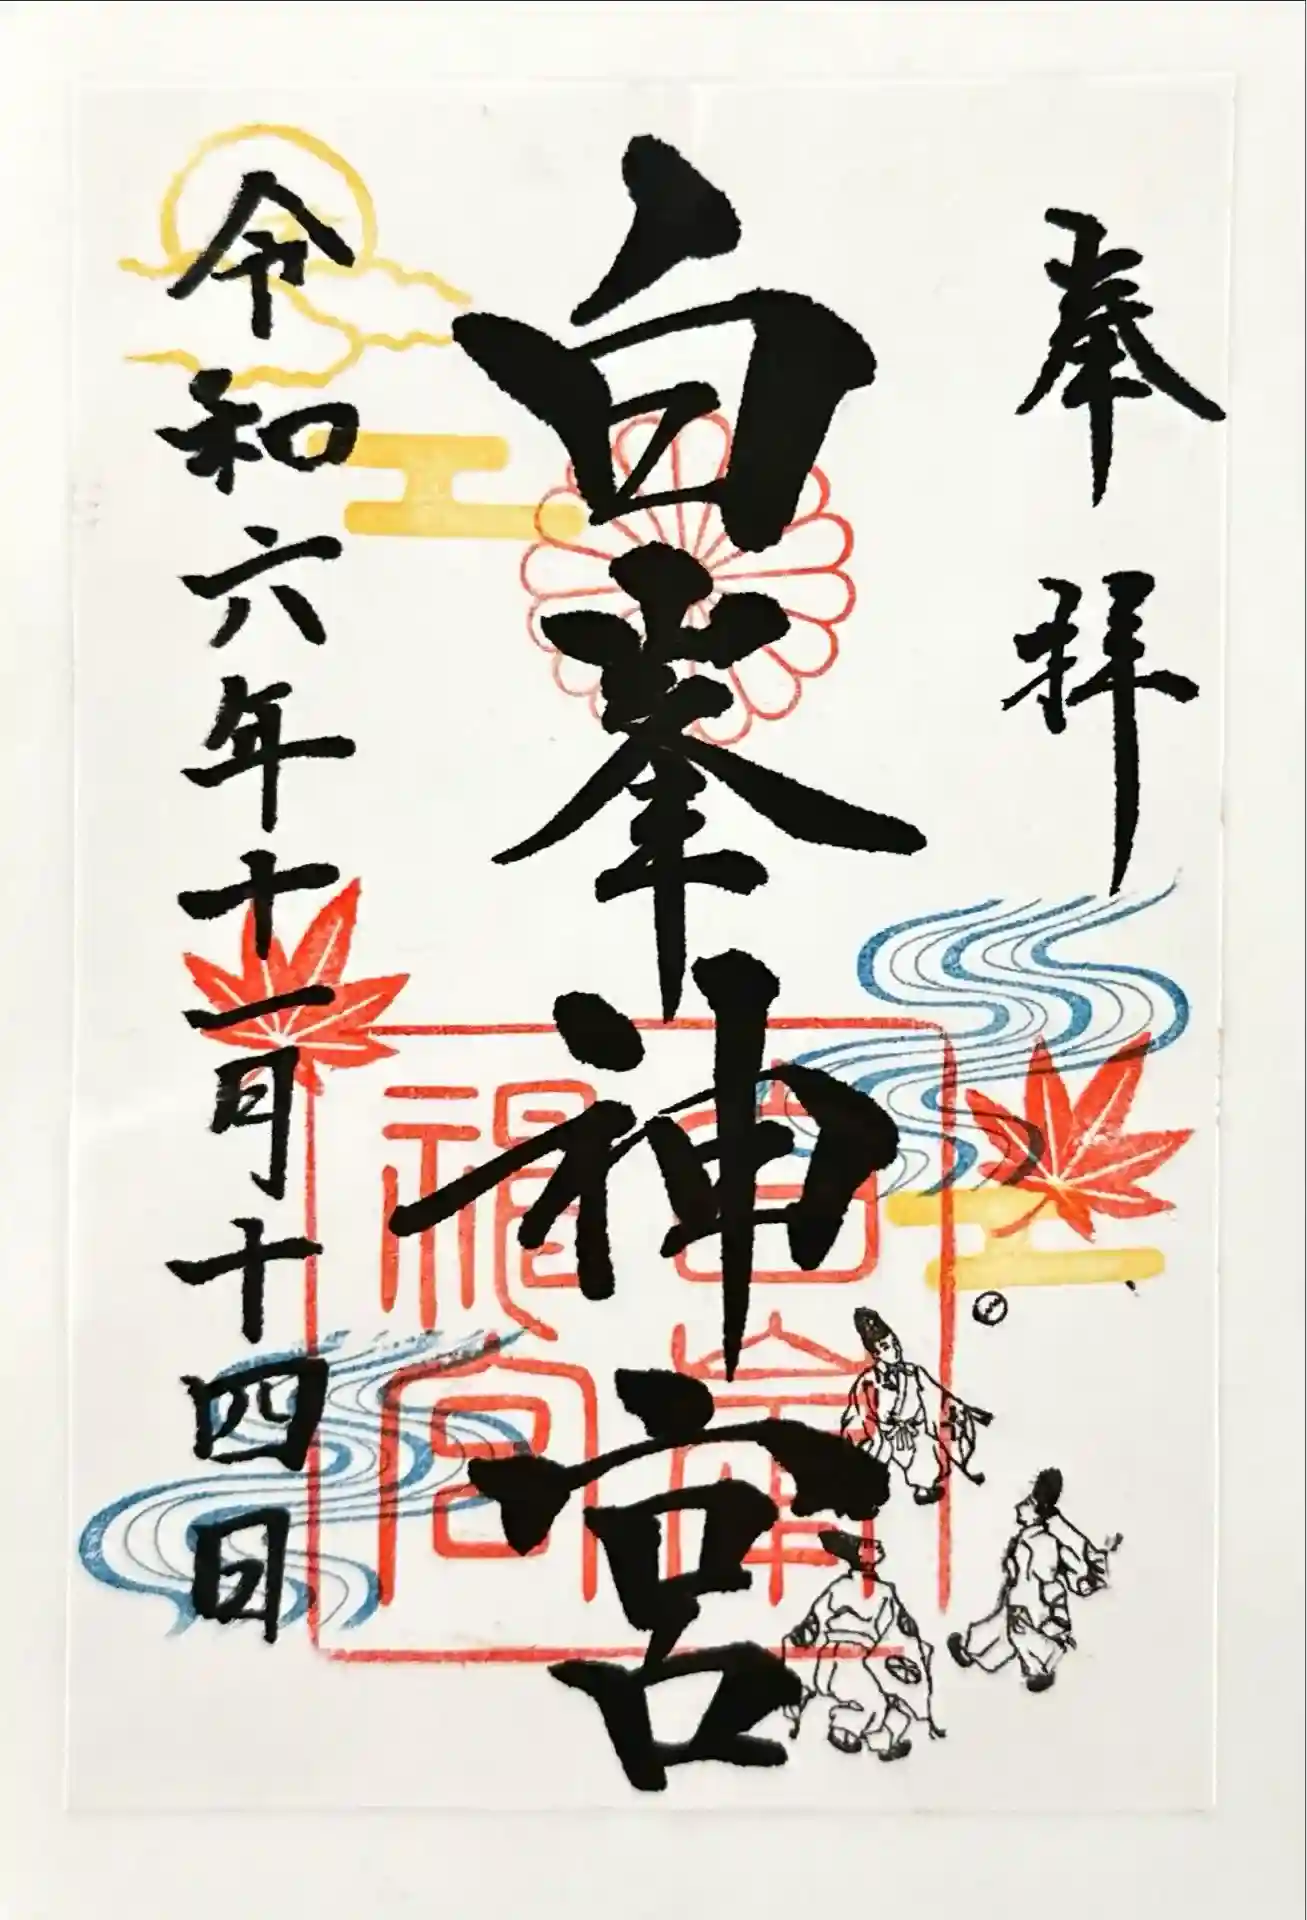 奉拝
白峯神宮
白峯神宮
令和六年十一月十四日